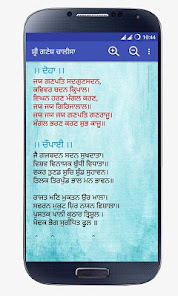 11:44
ਸ਼੍ਰੀ ਗਣੇਸ਼ ਚਾਲੀਸਾ
।। ਦੋਹਾ ।।
ਜਯ ਗਣਪਤਿ ਸਦਗੁਣਸਦਨ,
ਕਵਿਵਰ ਬਦਨ ਕ੍ਰਿਪਾਲ।
ਵਿਘਨ ਹਰਣ ਮੰਗਲ ਕਰਣ,
ਜਯ ਜਯ ਗਿਰਿਜਾਲਾਲ।।
ਜਯ ਜਯ ਜਯ ਗਣਪਤਿ ਗਣਰਾਜੂ।
ਮੰਗਲ ਭਰਣ ਕਰਣ ਸ਼ੁਭ ਕਾਜੂ।।
।। ਚੌਪਾਈ ।।
ਜੈ ਗਜਬਦਨ ਸਦਨ ਸੁਖਦਾਤਾ।
ਵਿਸ਼ਵ ਵਿਨਾਯਕ ਬੁੱਧੀ ਵਿਧਾਤਾ।
ਵਕਰ ਤੁਣਡ ਸ਼ੁਚਿ ਸ਼ੁੰਡ ਸੁਹਾਵਨ।
ਤਿਲਕ ਤ੍ਰਿਪੁੰਡ ਭਾਲ ਮਨ ਭਾਵਨ।
ਰਾਜਤ ਮਣਿ ਮੁਕਤਨ ਉਰ ਮਾਲਾ।
ਸਵਰਨ ਮੁਕੁਟ ਸ਼ਿਰ ਨਯਨ ਵਿਸ਼ਾਲਾ।
ਪੁਸਤਕ ਪਾਨੀ ਕੁਠਾਰ ਤ੍ਰਿਸ਼ੂਲ।
ਮੋਦਕ ਭੋਗ ਸੁਗੰਧਿਤ ਫੂਲ।